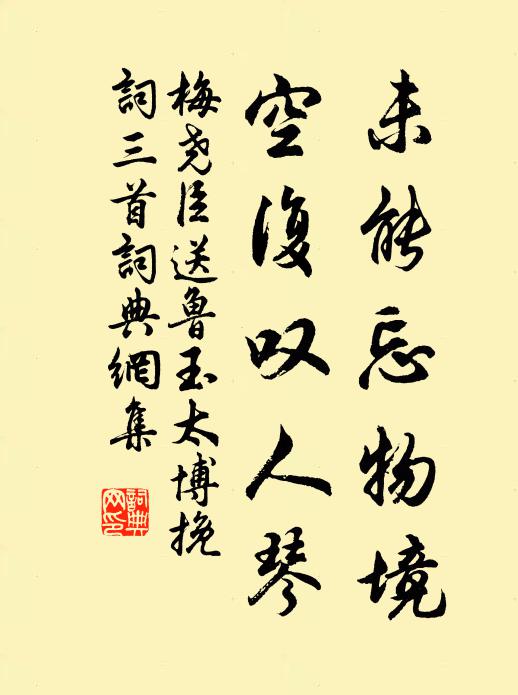 未能忘物境
空復叹人琴
梅尧臣送魯玉太博挽
詞三首詞典網集
詞典
网印